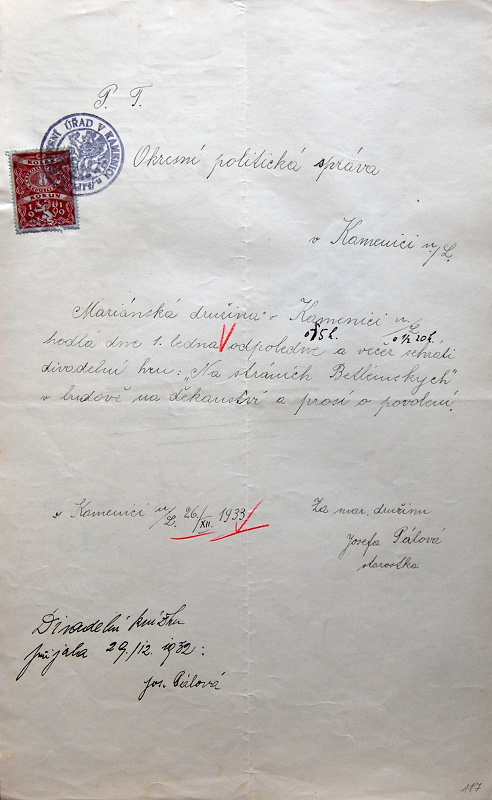 P. T.
Okresní politická správa
v Kamenici n/L.
Mariánská družina v Kamenici n/L.
o 5 h. o ½ 20 h.
hodlá dne 1. ledna odpoledne a večer sehráti
divadelní hru: „Na stráních Betlémských"
v budově na děkanství a prosí o povolení.
v Kamenici n/L. 26/XII. 1933
Za mar. družinu
Josefa Pálová
starostka
Divadelní knížku
přijala 29./12. 1932:
Jos. Pálová
117